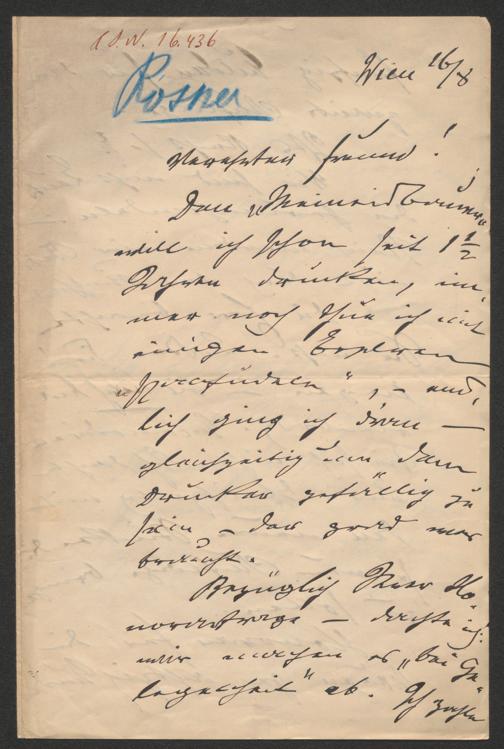 I.N. 16.436
Rosner
Wien 16/8
Verehrter Freund!
Den „Meineidbauer“
will ich schon seit 1 1/2
Jahren drucken, im-
mer noch thue ich mit
einigen
“, – end-
lich ging ich dran –
gleichzeitig um dem
Drucker gefällig zu
sein – der grad was
braucht.
Bezüglich Ihrer Ho-
norarfrage – dachte ich
mir machen es „bei Ge-
legenheit“ ab. Ich zahle